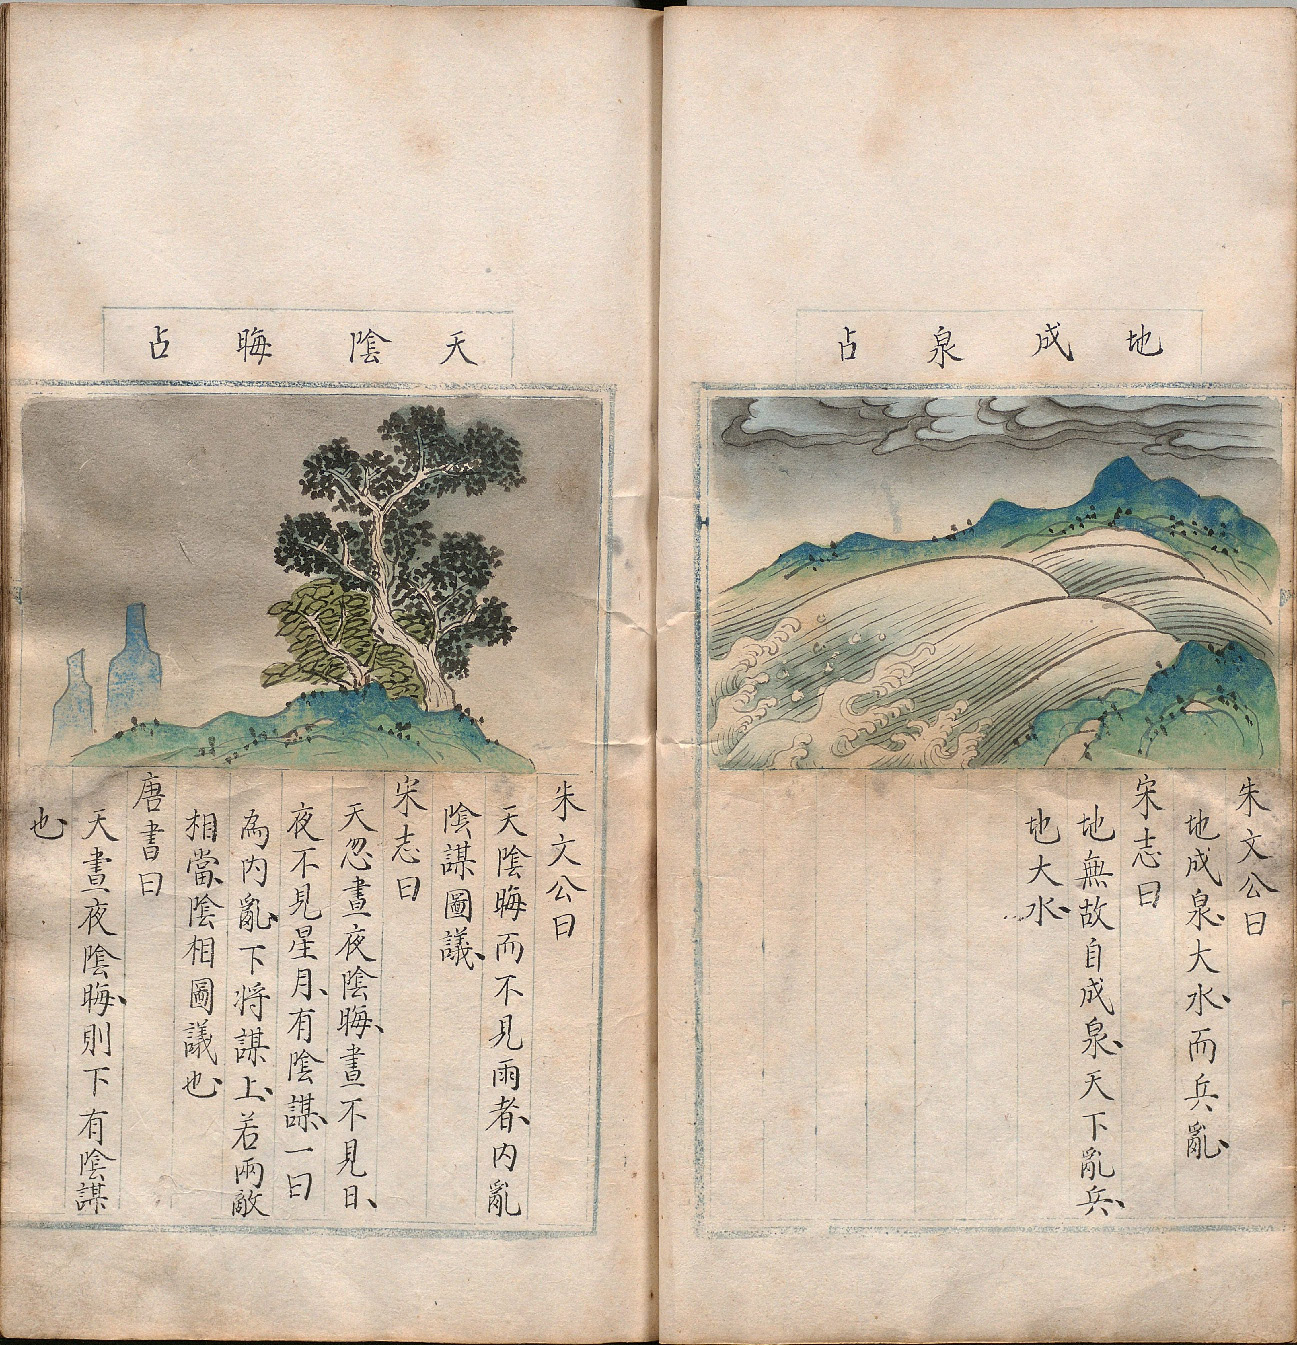 地成泉占
朱文公曰
地成泉、大水、而兵、亂、
宋志曰
地無故自成泉、天下亂兵、
地大水、
天陰晦占
朱文公曰
天陰晦而不見雨者、內亂
陰謀圖議、
宋志曰
天忽晝夜陰晦、晝不見日、
夜不見星月、有陰謀、一曰
為內亂、下將謀上、若兩敵
相當、陰相圖議也、
唐書曰
天晝夜陰晦、則下有陰謀
也、